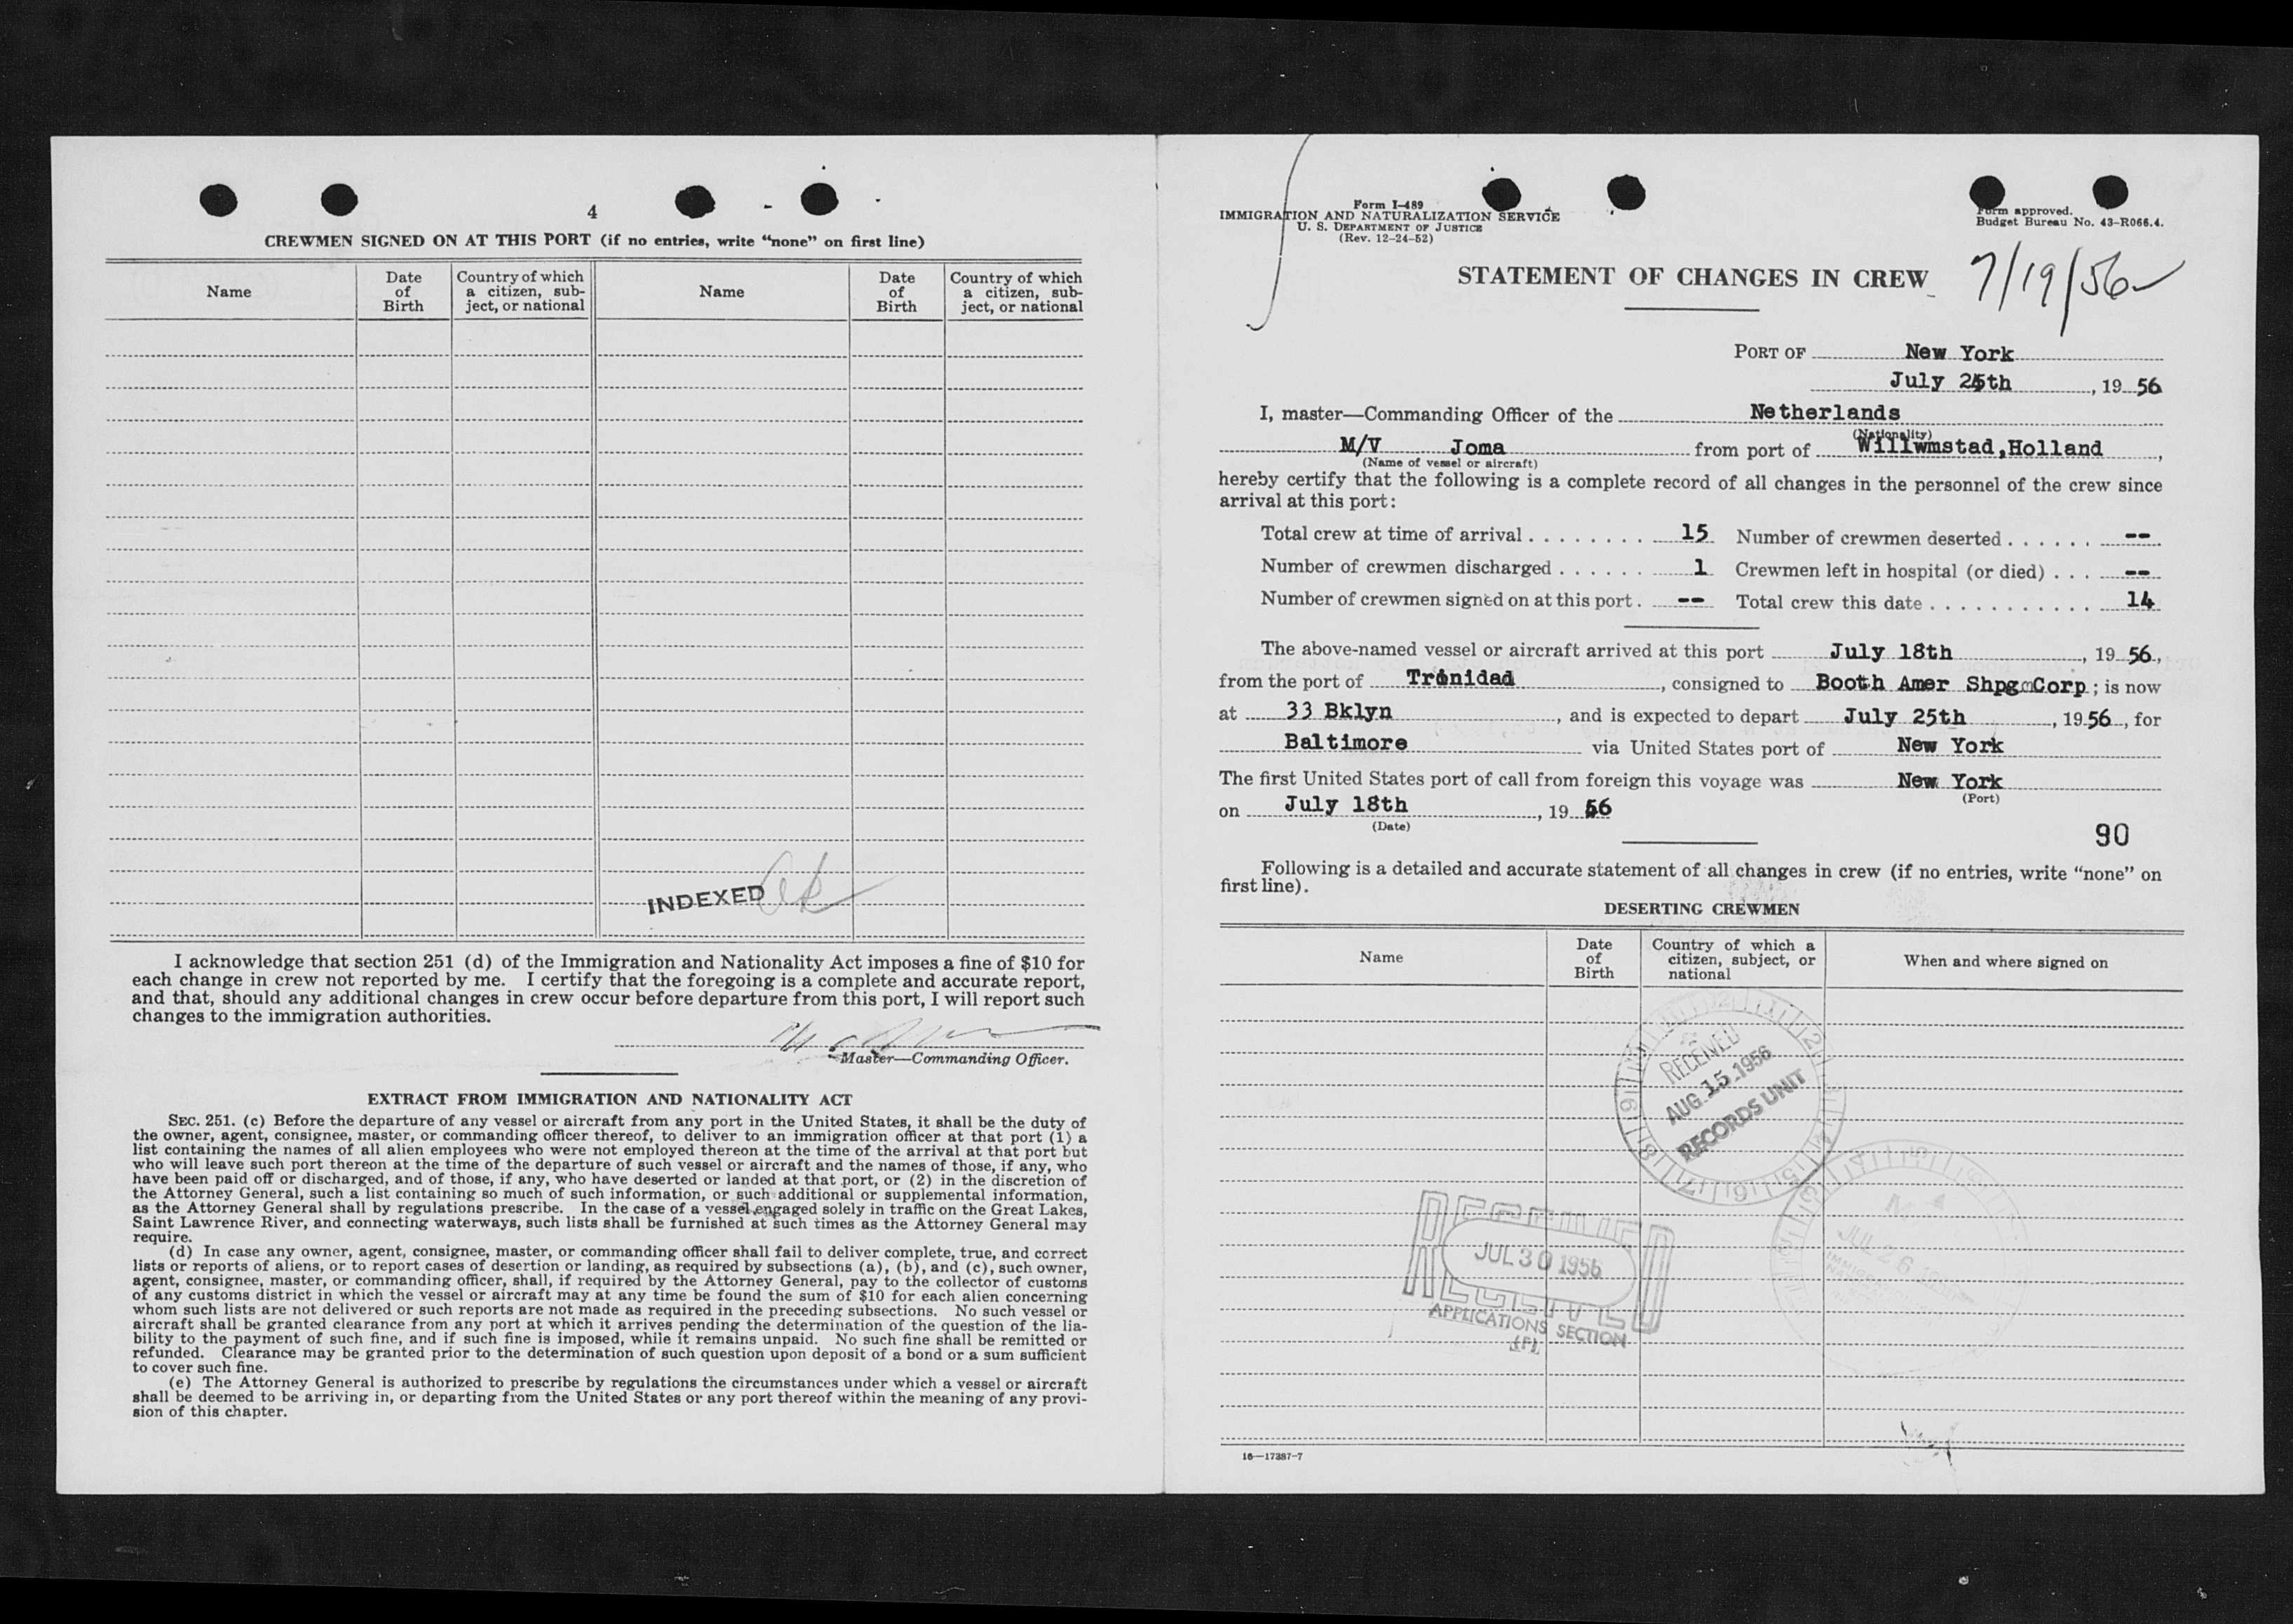 4
CREWMEN SIGNED ON AT THIS PORT (if no entries, write “none” on first line)
Name
Date of Birth
Country of which a citizen, sub-ject, or national
Name
Date of Birth
Country of which a citizen, sub-ject, or national
INDEXED
I acknowledge that section 251 (d) of the Immigration and Nationality Act imposes a fine of $10 for
each change in crew not reported by me. I certify that the foregoing is a complete and accurate report,
and that, should any additional changes in crew occur before departure from this port, I will report such
changes to the immigration authorities.
Master—Commanding Officer.
EXTRACT FROM IMMIGRATION AND NATIONALITY ACT
SEC. 251. (c) Before the departure of any vessel or aircraft from any port in the United States, it shall be the duty of
the owner, agent, consignee, master, or commanding officer thereof, to deliver to an immigration officer at that port (1) a
list containing the names of all alien employees who were not employed thereon at the time of the arrival at that port but
who will leave such port thereon at the time of the departure of such vessel or aircraft and the names of those, if any, who
have been paid off or discharged, and of those, if any, who have deserted or landed at that port, or (2) in the discretion of
the Attorney General, such a list containing so much of such information, or such additional or supplemental information,
as the Attorney General shall by regulations prescribe. In the case of a vessel engaged solely in traffic on the Great Lakes,
Saint Lawrence River, and connecting waterways, such lists shall be furnished at such times as the Attorney General may
require.
(d) In case any owner, agent, consignee, master, or commanding officer shall fail to deliver complete, true, and correct
lists or reports of aliens, or to report cases of desertion or landing, as required by subsections (a), (b), and (c), such owner,
agent, consignee, master, or commanding officer, shall, if required by the Attorney General, pay to the collector of customs
of any customs district in which the vessel or aircraft may at any time be found the sum of $10 for each alien concerning
whom such lists are not delivered or such reports are not made as required in the preceding subsections. No such vessel or
aircraft shall be granted clearance from any port at which it arrives pending the determination of the question of the lia-
bility to the payment of such fine, and if such fine is imposed, while it remains unpaid. No such fine shall be remitted or
refunded. Clearance may be granted prior to the determination of such question upon deposit of a bond or a sum sufficient
to cover such fine.
(e) The Attorney General is authorized to prescribe by regulations the circumstances under which a vessel or aircraft
shall be deemed to be arriving in, or departing from the United States or any port thereof within the meaning of any provi-
sion of this chapter.
Form I-489
IMMIGRATION AND NATURALIZATION SERVICE
U. S. DEPARTMENT OF JUSTICE
(Rev. 12-24-52)
Form approved.
Budget Bureau No. 43-R066.4.
STATEMENT OF CHANGES IN CREW
7/19/56
PORT OF New York
July 25th, 19 56
I, master—Commanding Officer of the Netherlands
(Nationality)
M/V Joma from port of Willwmstad,Holland,
(Name of vessel or aircraft)
hereby certify that the following is a complete record of all changes in the personnel of the crew since
arrival at this port:
Total crew at time of arrival 15 Number of crewmen deserted --
Number of crewmen discharged 1 Crewmen left in hospital (or died) --
Number of crewmen signed on at this port --- Total crew this date 14
The above-named vessel or aircraft arrived at this port July 18th, 19 56,
from the port of Trinidad, consigned to Booth Amer Shpg Corp; is now
at 33 Bklyn, and is expected to depart July 25th, 1956, for
Baltimore via United States port of New York
The first United States port of call from foreign this voyage was New York
(Port)
on July 18th, 19 56
(Date)
90
Following is a detailed and accurate statement of all changes in crew (if no entries, write “none” on
first line).
DESERTING CREWMEN
Name
Date of Birth
Country of which a citizen, subject, or national
When and where signed on
RECEIVED
AUG. 15 1956
RECORDS UNIT
RECEIVED
JUL 30 1956
APPLICATIONS SECTION
JUL 26
16—17387-7